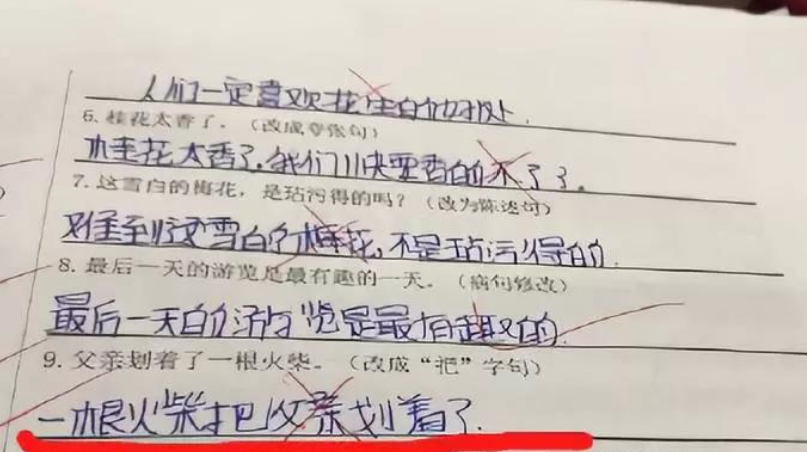 人们一定喜欢花生的好处.
6. 桂花太香了。（改成夸张句）
桂花太香了.我们快要香的不了了。
7. 这雪白的梅花，是玷污得的吗？（改为陈述句）
难到这雪白的梅花,不是玷污得的.
8. 最后一天的游览是最有趣的一天。（病句修改）
最后一天的游览是最有趣的.
9. 父亲划着了一根火柴。（改成“把”字句）
一根火柴把父亲划着了.